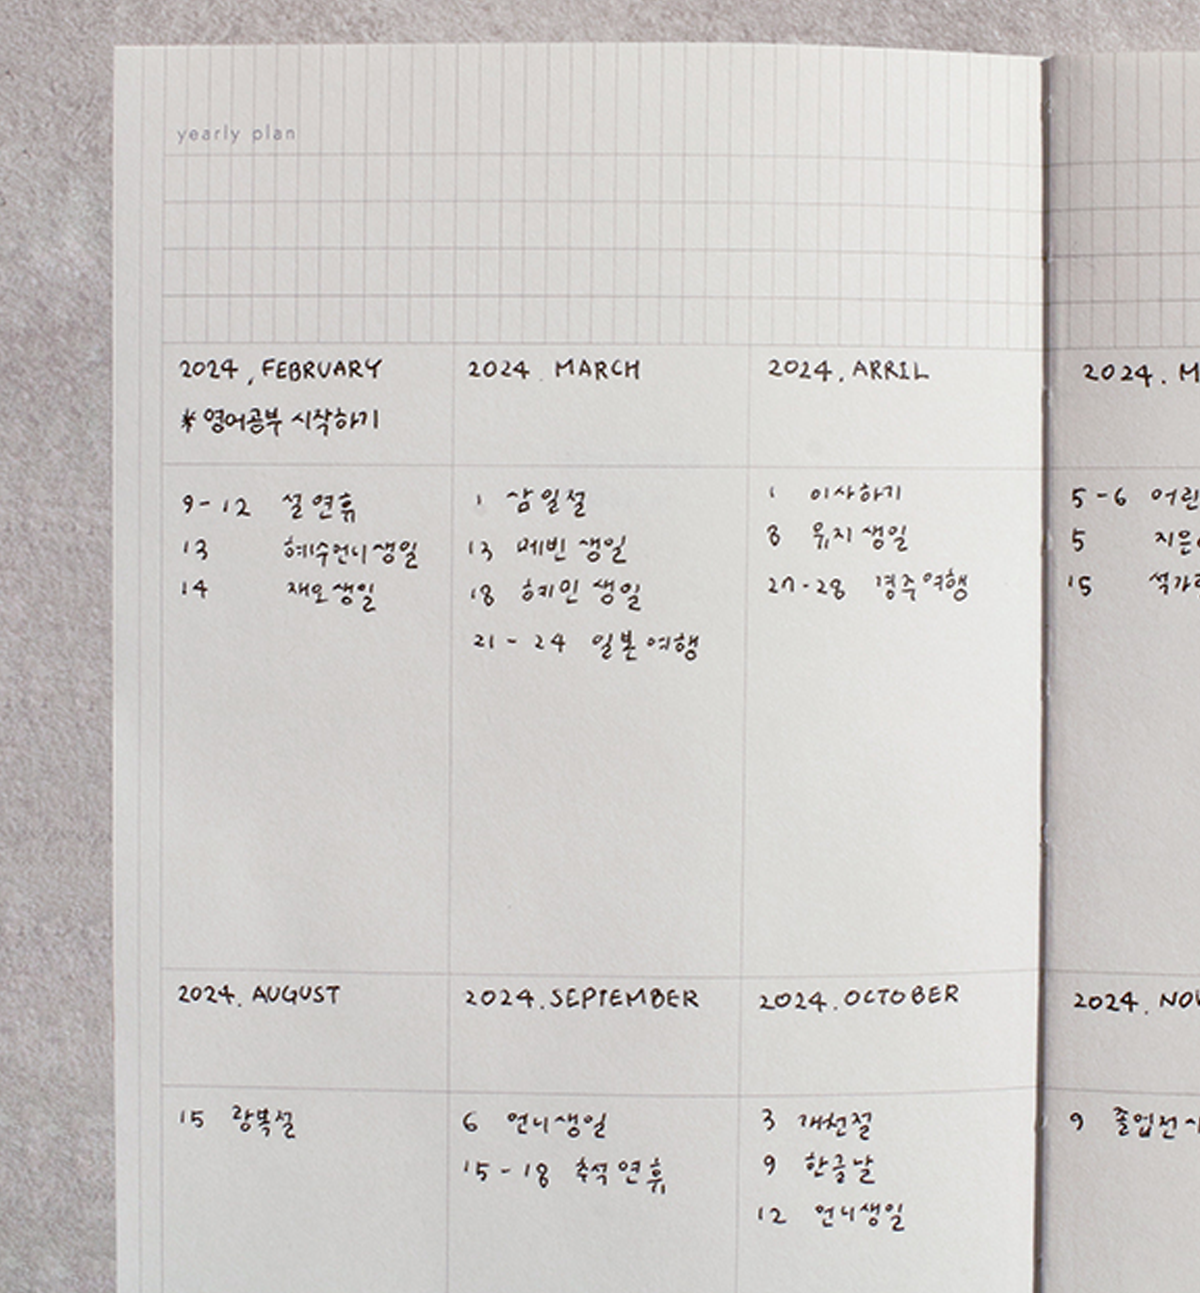 yearly plan
2024. FEBRUARY
* 영어공부 시작하기
9-12 설 연휴
13 혜수언니 생일
14 재오 생일
2024. MARCH
1 삼일절
13 예빈 생일
18 혜인 생일
21 - 24 일본 여행
2024. ARRIL
1 이사하기
8 생일
27-28 경주여행
2024. M
5-6 어린
5 지은
15 석가
2024. AUGUST
15 광복절
2024. SEPTEMBER
6 언니생일
15-18 추석 연휴
2024. OCTOBER
3 개천절
9 한글날
12 언니생일
2024. NOV
9 졸업전시